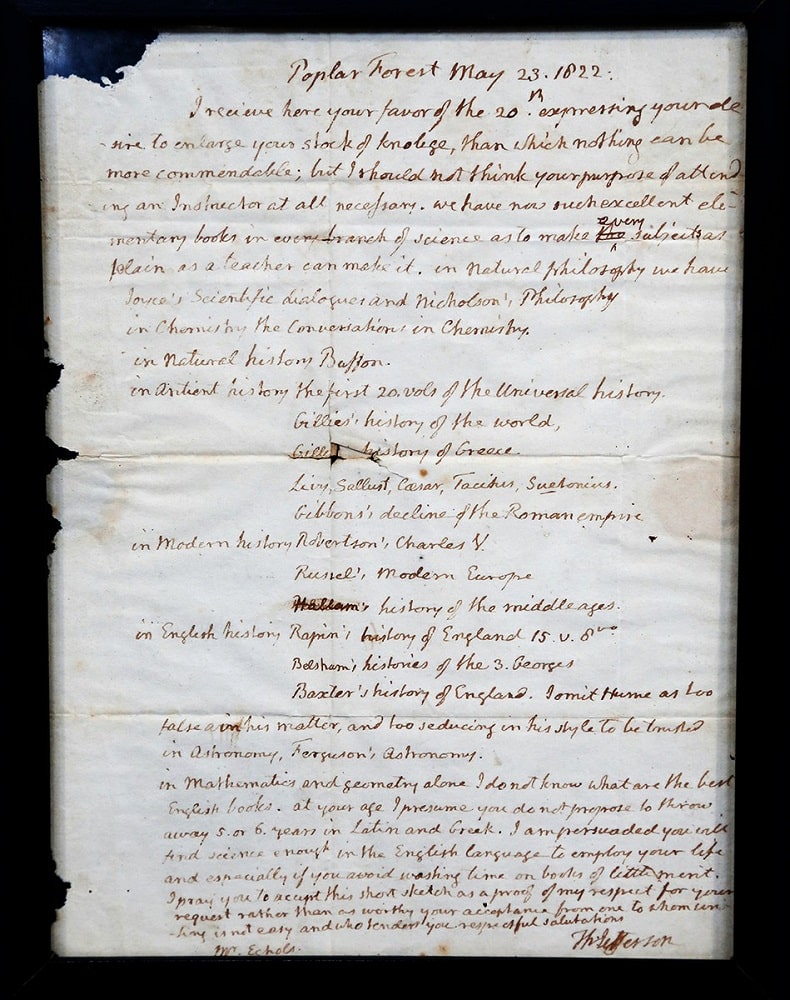 Poplar Forest May 23. 1822.
I recieve here your favor of the 20th. expressing your de
sire to enlarge your stock of knolege, than which nothing can be
more commendable; but I should not think your purpose of attend-
ing an Instructor at all necessary. we have now such excellent ele-
mentary books in every branch of science as to make the every subject as
plain as a teacher can make it. in Natural philosophy we have
Joyce's Scientific dialogues and Nicholson's Philosophy
in Chemistry the Conversations in Chemistry.
in Natural history Buffon.
in Antient history the first 20. vols of the Universal history.
Gillies' history of the world,
history of Greece.
Livy, Sallust, Caesar, Tacitus, Suetonius.
Gibbons's decline of the Roman empire
in Modern history Robertson's Charles V.
Russel's Modern Europe
Hallam's history of the middle ages.
in English history Rapin's history of England 15. v. 8vo
Belsham's histories of the 3. Georges
Baxter's history of England. I omit Hume as too
false in his matter, and too seducing in his style to be trusted
in Astronomy, Ferguson's Astronomy.
in Mathematics and geometry alone I do not know what are the best
English books. at your age I presume you do not propose to throw
away 5. or 6. years in Latin and Greek. I am persuaded you will
find science enough in the English language to employ your life
and especially if you avoid wasting time on books of little merit.
I pray you to accept this short sketch as a proof of my respect for your
request rather than as worthy your acceptance from one to whom wri-
-ting is not easy and who tenders you respectful salutations
Th: Jefferson
Mr. Echols.